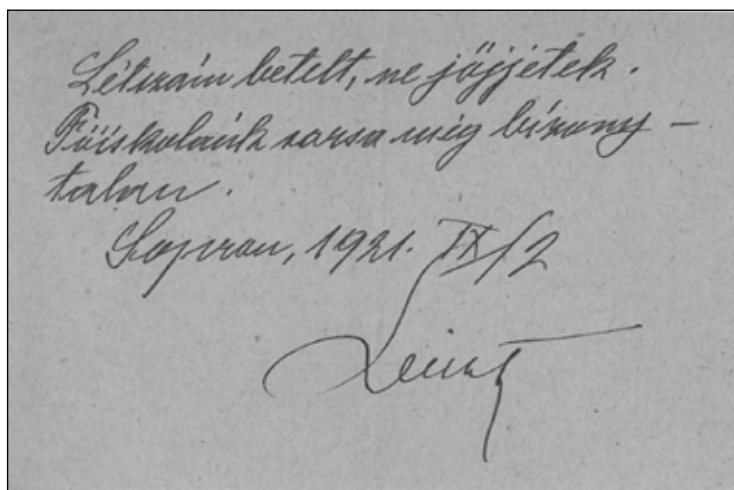 Létszám betelt, ne jőjjetek.
Főiskolánk sorsa még bizony-
talan.
Sopron, 1921. IX/2